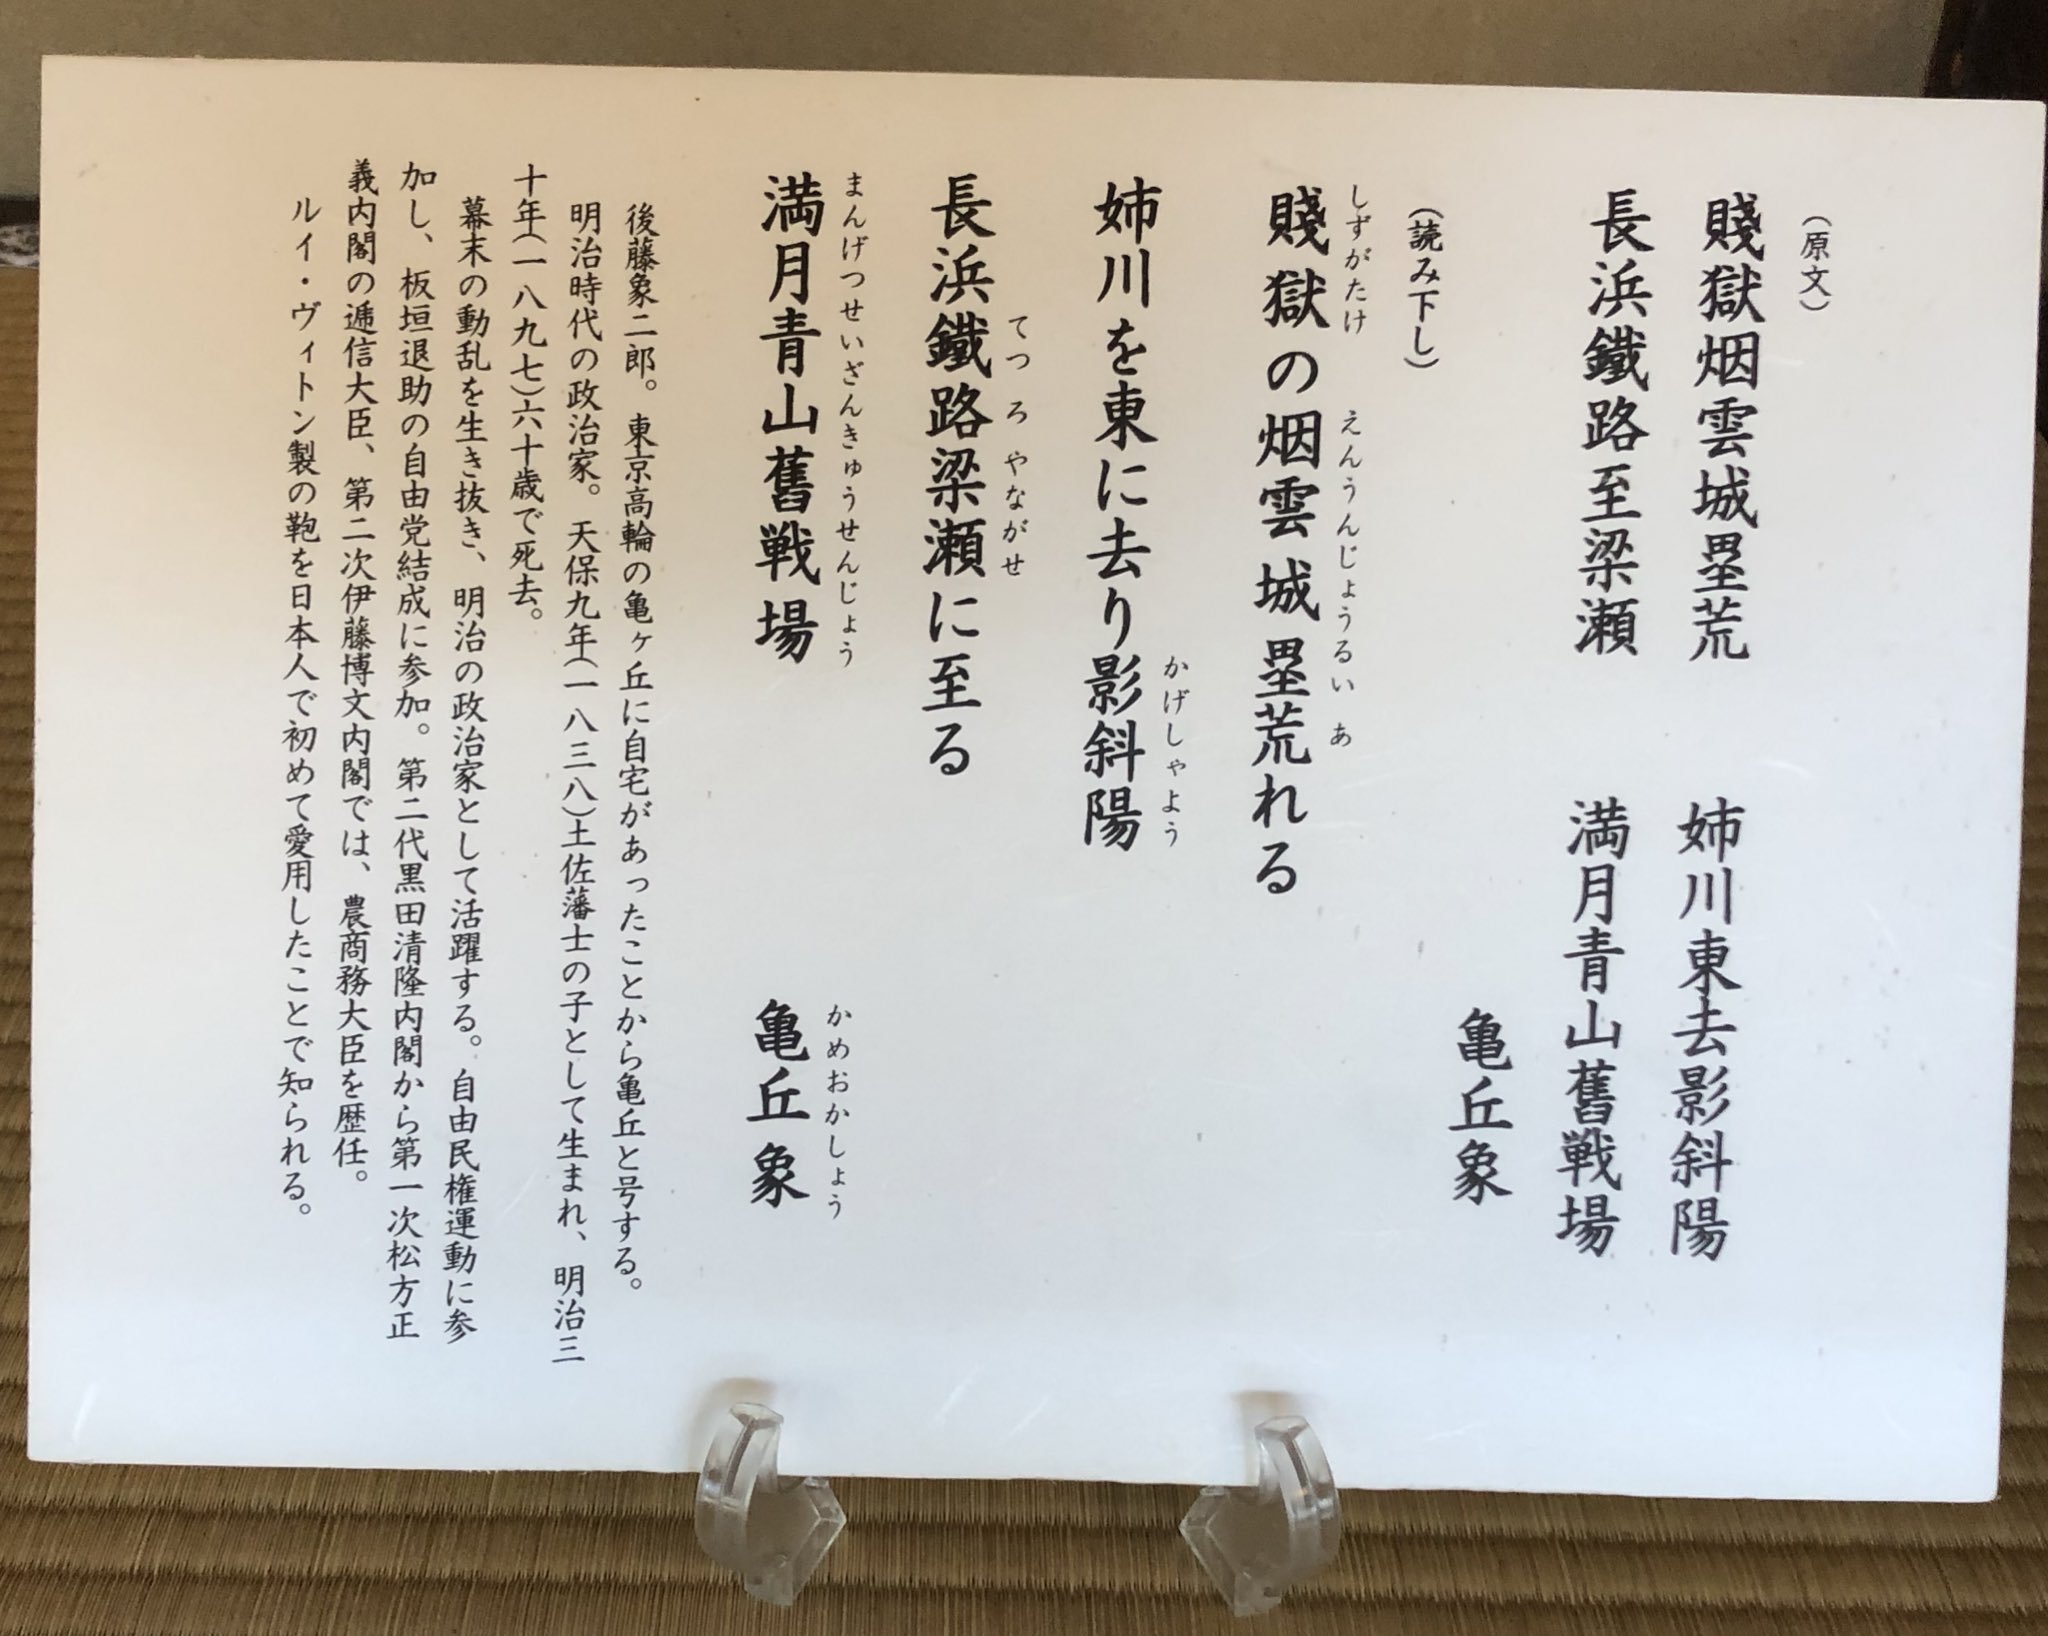 （原文）
賤獄烟雲城塁荒　姉川東去影斜陽
長浜鐵路至梁瀬　満月青山舊戦場
亀丘象
（読み下し）
しずがたけ　えんうんじょうるい　あ
賤獄の烟雲城塁荒れる
かげしゃよう
姉川を東に去り影斜陽
てつ　ろ　やながせ
長浜鐵路梁瀬に至る
まんげつせいざんきゅうせんじょう　かめおかしょう
満月青山舊戦場　亀丘象
後藤象二郎。東京高輪の亀ヶ丘に自宅があったことから亀丘と号する。
明治時代の政治家。天保九年（一八三八）土佐藩士の子として生まれ、明治三
十年（一八九七）六十歳で死去。
幕末の動乱を生き抜き、明治の政治家として活躍する。自由民権運動に参
加し、板垣退助の自由党結成に参加。第二代黒田清隆内閣から第一次松方正
義内閣の逓信大臣、第二次伊藤博文内閣では、農商務大臣を歴任。
ルイ・ヴィトン製の鞄を日本人で初めて愛用したことで知られる。